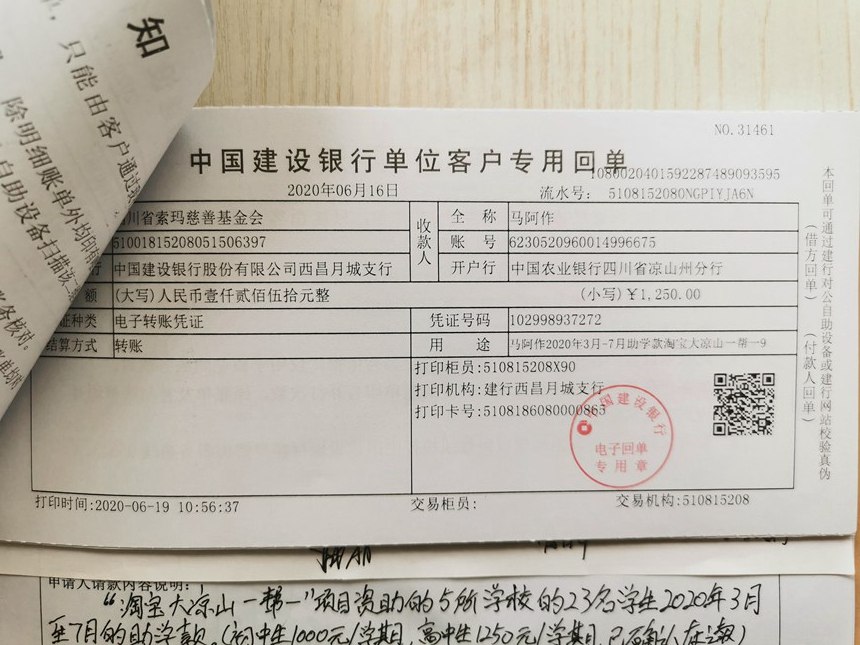 知
只能由客户通过
除明细账单外均
自助设备扫描该
核对。
NO.31461
中国建设银行单位客户专用回单
1080020401592287489093595
2020年06月16日
流水号: 5108152080NGPIYJA6N
川省索玛慈善基金会
收款人
全 称
马阿作
51001815208051506397
账 号
6230520960014996675
行
中国建设银行股份有限公司西昌月城支行
开户行
中国农业银行四川省凉山州分行
额
(大写)人民币壹仟贰佰伍拾元整
(小写)￥1,250.00
证种类
电子转账凭证
凭证号码
102998937272
结算方式
转账
用 途
马阿作2020年3月-7月助学款淘宝大凉山一帮一9
打印柜员:510815208X90
打印机构:建行西昌月城支行
打印卡号:5108186080000865
中国建设银行
电子回单
专用章
打印时间:2020-06-19 10:56:37
交易柜员:
交易机构:510815208
本回单可通过建行对公自助设备或建行网站校验真伪
(借方回单)
(付款人回单)
申请人请款内容说明:
“淘宝大凉山一帮一”项目资助的5所学校的23名学生2020年3月
至7月的助学款。(初中生1000元/学期,高中生1250元/学期,已确认在读)